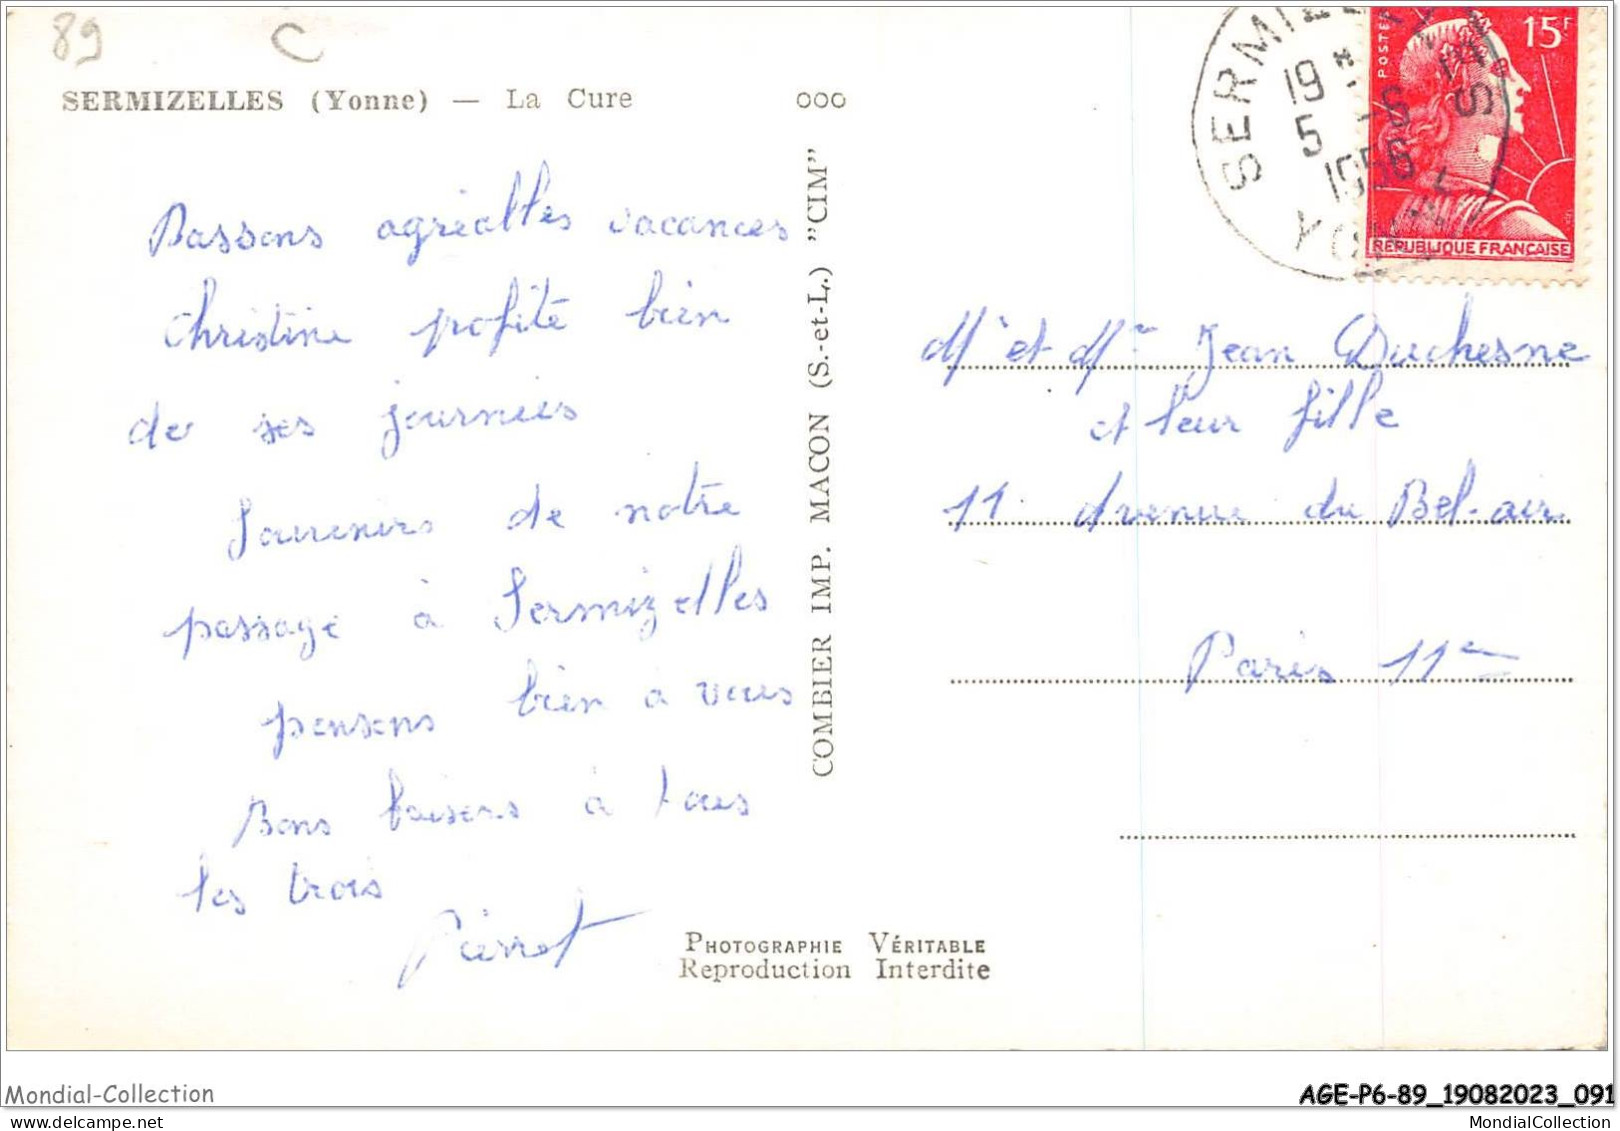 89 C
SERMIZELLES (Yonne) — La Cure
000
Passons agréables vacances
Christine profite bien
de ses journées
Souvenirs de notre
passage à Sermizelles
pensons bien à vous
Bons baisers à tous
les trois
Pierrot
COMBIER IMP. MACON (S.-et-L.) "CIM"
PHOTOGRAPHIE VÉRITABLE
Reproduction Interdite
SERMIZELLES
19 H
5 -6
1956
YONNE
POSTES
15F
REPUBLIQUE FRANÇAISE
Mr et Me Jean Duchesne
et leur fille
11 Avenue du Bel-air
Paris 11e
Mondial-Collection
AGE-P6-89_19082023_091
MondialCollection